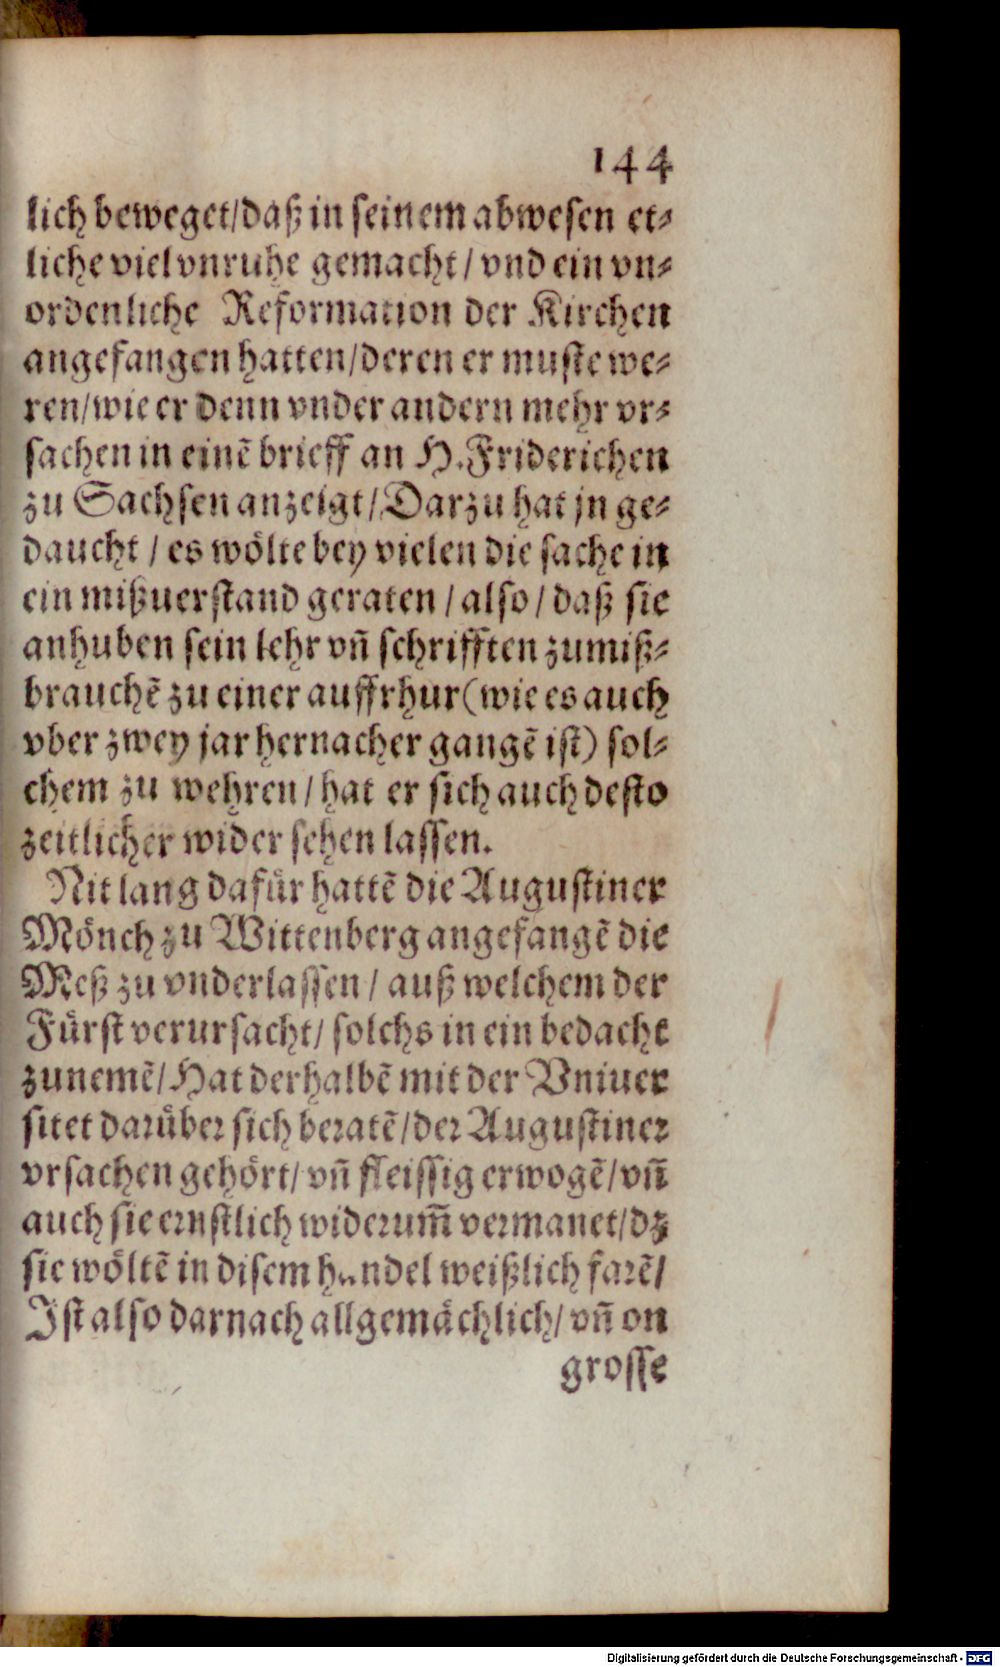 144
lich beweget/daß in seinem abwesen et⸗
liche viel vnruhe gemacht / vnd ein vn⸗
ordenliche Reformation der Kirchen
angefangen hatten/deren er muste we⸗
ren/wie er denn vnder andern mehr vr⸗
sachen in einẽ brieff an H. Friderichen
zu Sachsen anzeigt/Darzu hat jn ge⸗
daucht / es wölte bey vielen die sache in
ein mißuerstand geraten / also / daß sie
anhuben sein lehr vñ schrifften zumiß⸗
brauchẽ zu einer auffrhur (wie es auch
vber zwey jar hernacher gangẽ ist) sol⸗
chem zu wehren / hat er sich auch desto
zeitlicher wider sehen lassen.
Nit lang dafür hattẽ die Augustiner
Mönch zu Wittenberg angefangẽ die
Meß zu vnderlassen / auß welchem der
Fürst verursacht/ solchs in ein bedacht
zunemẽ/Hat derhalbẽ mit der Vniuer
sitet darüber sich beratẽ/der Augustiner
vrsachen gehört/ vñ fleissig erwogẽ/vñ
auch sie ernstlich widerum̃ vermanet/dz
sie wöltẽ in disem handel weißlich farẽ/
Ist also darnach allgemächlich/ vñ on
grosse
Digitalisierung gefördert durch die Deutsche Forschungsgemeinschaft - DFG